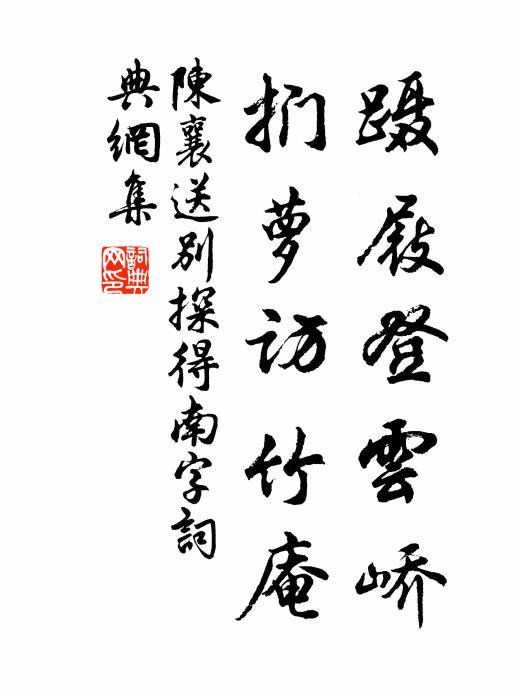 蹑屐登雲峤
扪萝访竹庵
陳襄送别探得南字詞
典網集
詞典網印